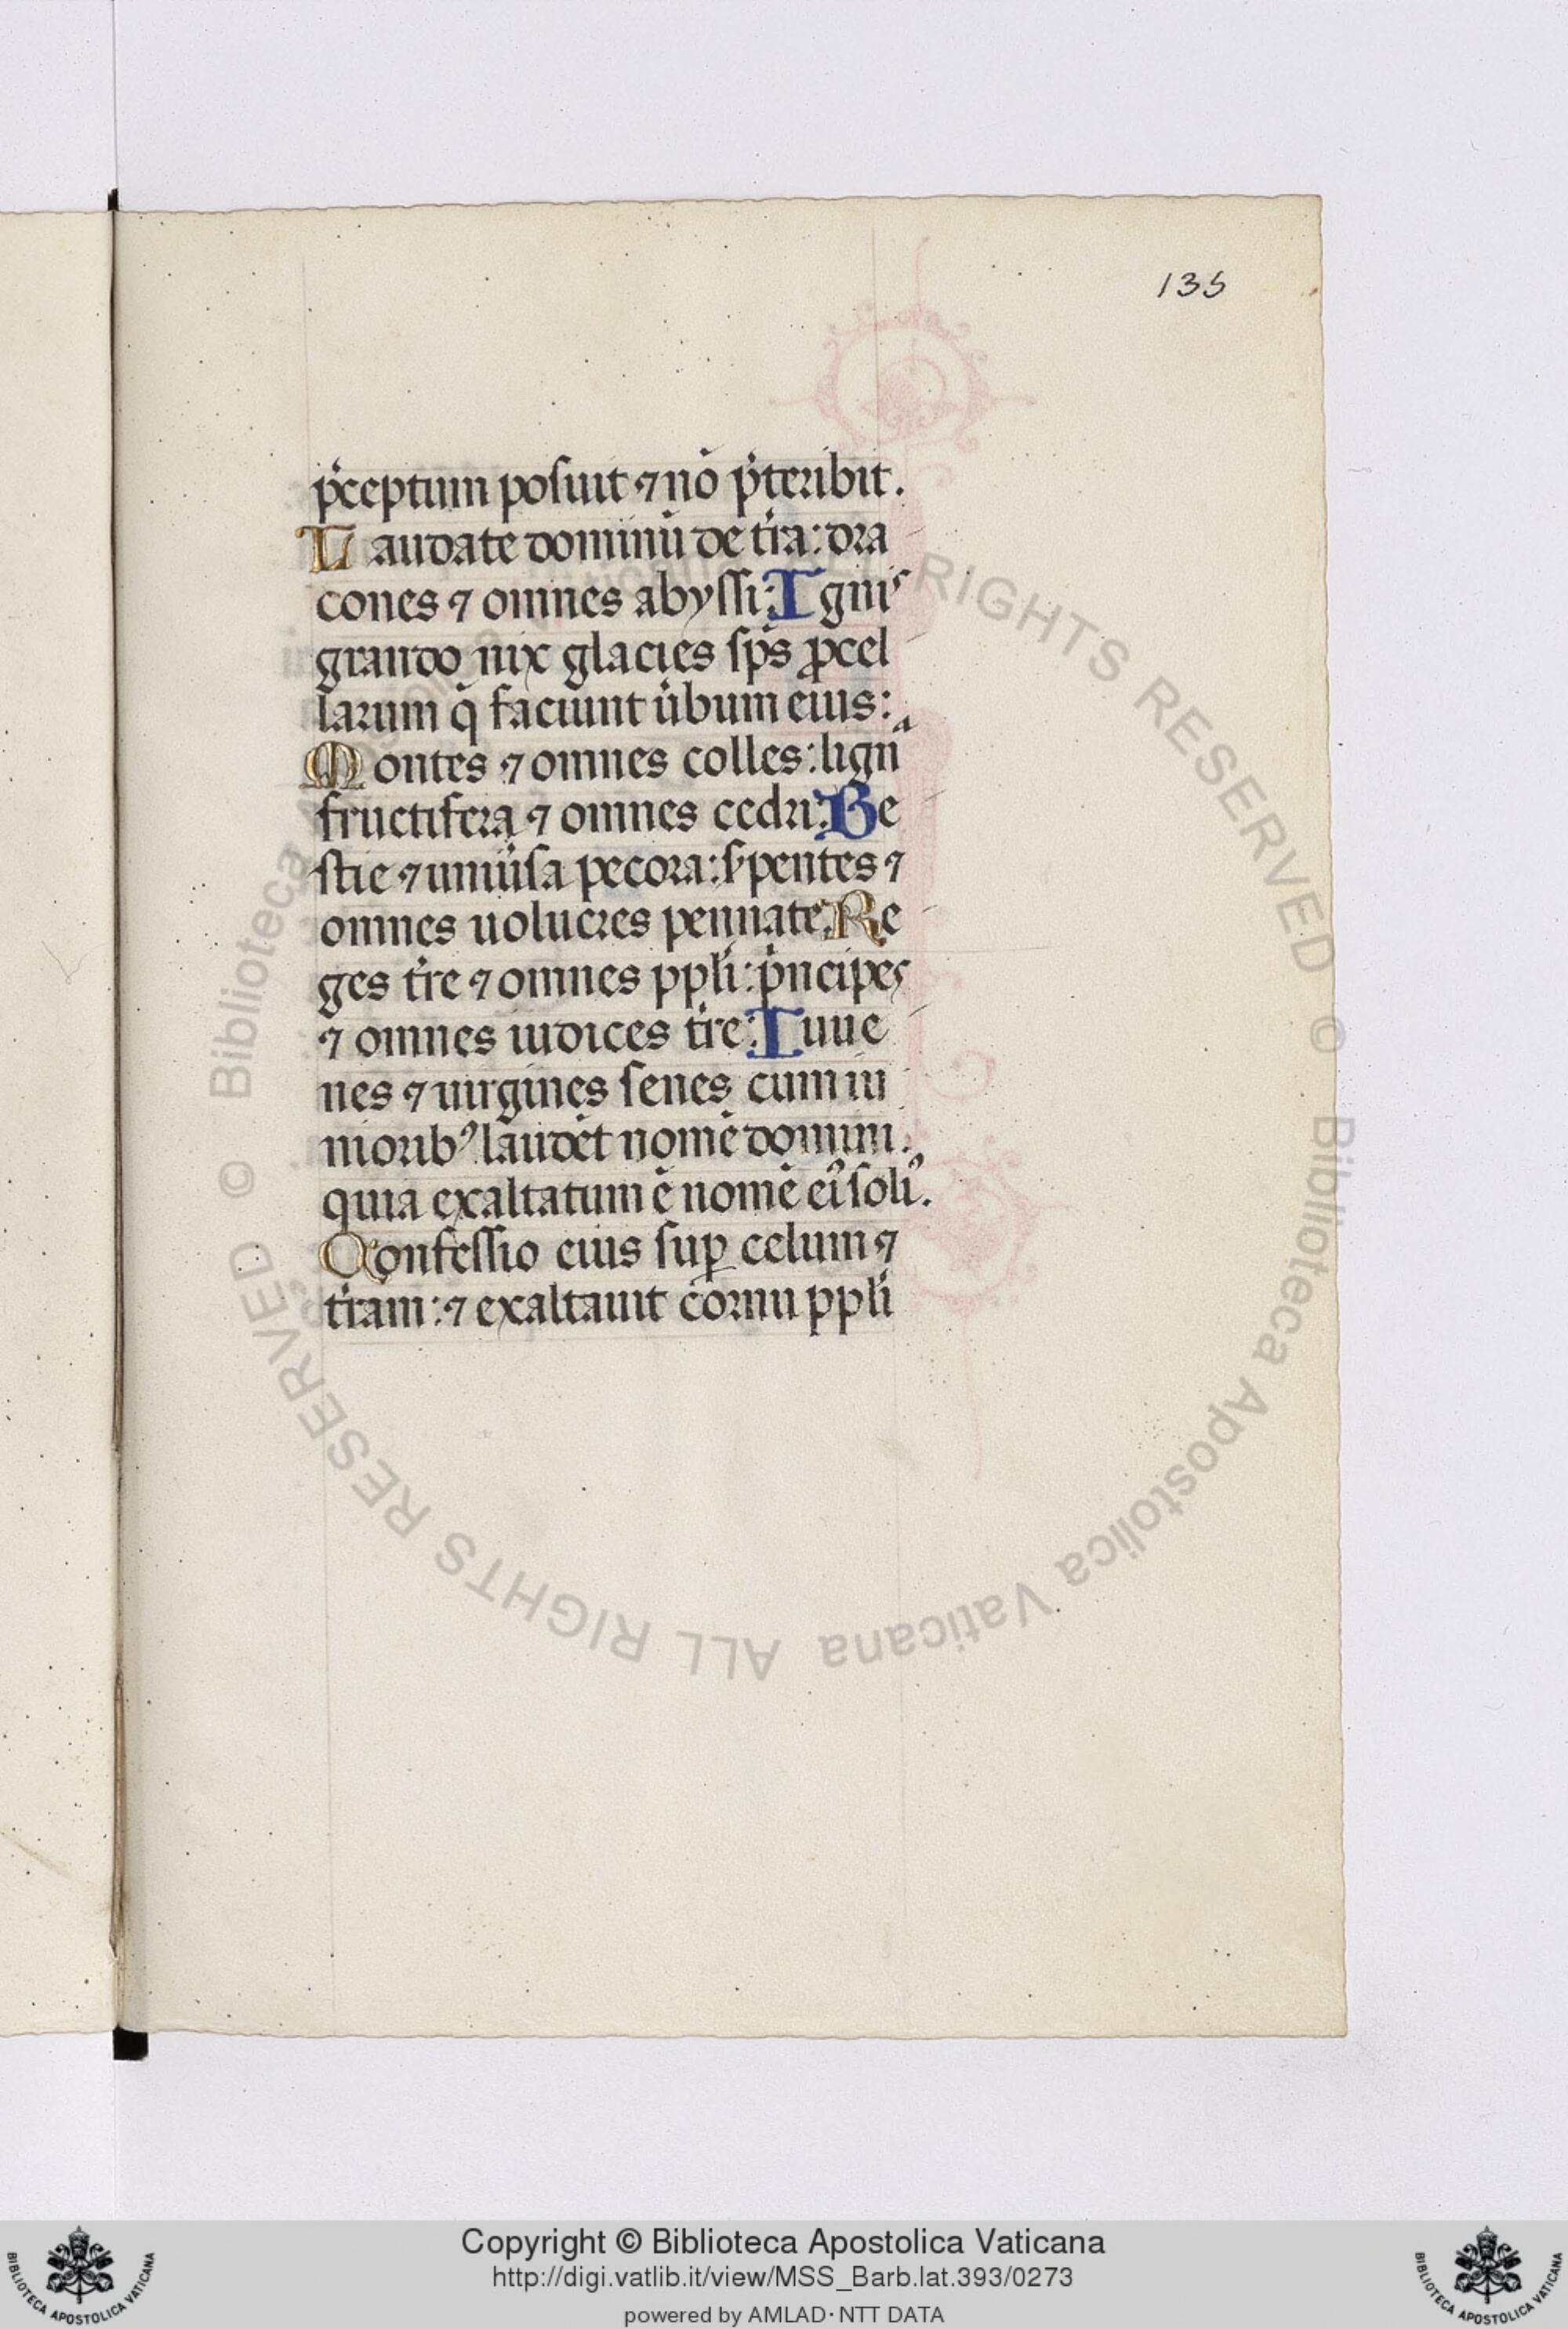 135
p̾ceptum poſuit ⁊ nō p̾teribit.
Laudate dominū de t̾ra: dra
cones ⁊ omnes abyſſi: Ignis
grando nix glacies ſp̄s ꝓcel
larum q̄ faciunt u̾bum eius:
Montes ⁊ omnes colles: lignᵃ
fructifera ⁊ omnes cedri: Be
ſtie ⁊ uniu̾ſa pecora: ſ̾pentes ⁊
omnes uolucres pennate: Re
ges t̾re ⁊ omnes ppl̾i: p̾ncipes
⁊ omnes iudices t̾re: Iuue
nes ⁊ uirgines ſenes cum iu
nioribꝰ laudēt nomē domini.
quia exaltatum ē nomē eiꝰ ſoliꝰ.
Confeſſio eius ſuꝑ celum ⁊
t̾ram: ⁊ exaltauit cornu ppl̾i
© Biblioteca Apostolica Vaticana ALL RIGHTS RESERVED © Biblioteca Apostolica Vaticana ALL RIGHTS RESERVED
Copyright © Biblioteca Apostolica Vaticana
http://digi.vatlib.it/view/MSS_Barb.lat.393/0273
powered by AMLAD·NTT DATA
BIBLIOTECA APOSTOLICA VATICANA
BIBLIOTECA APOSTOLICA VATICANA